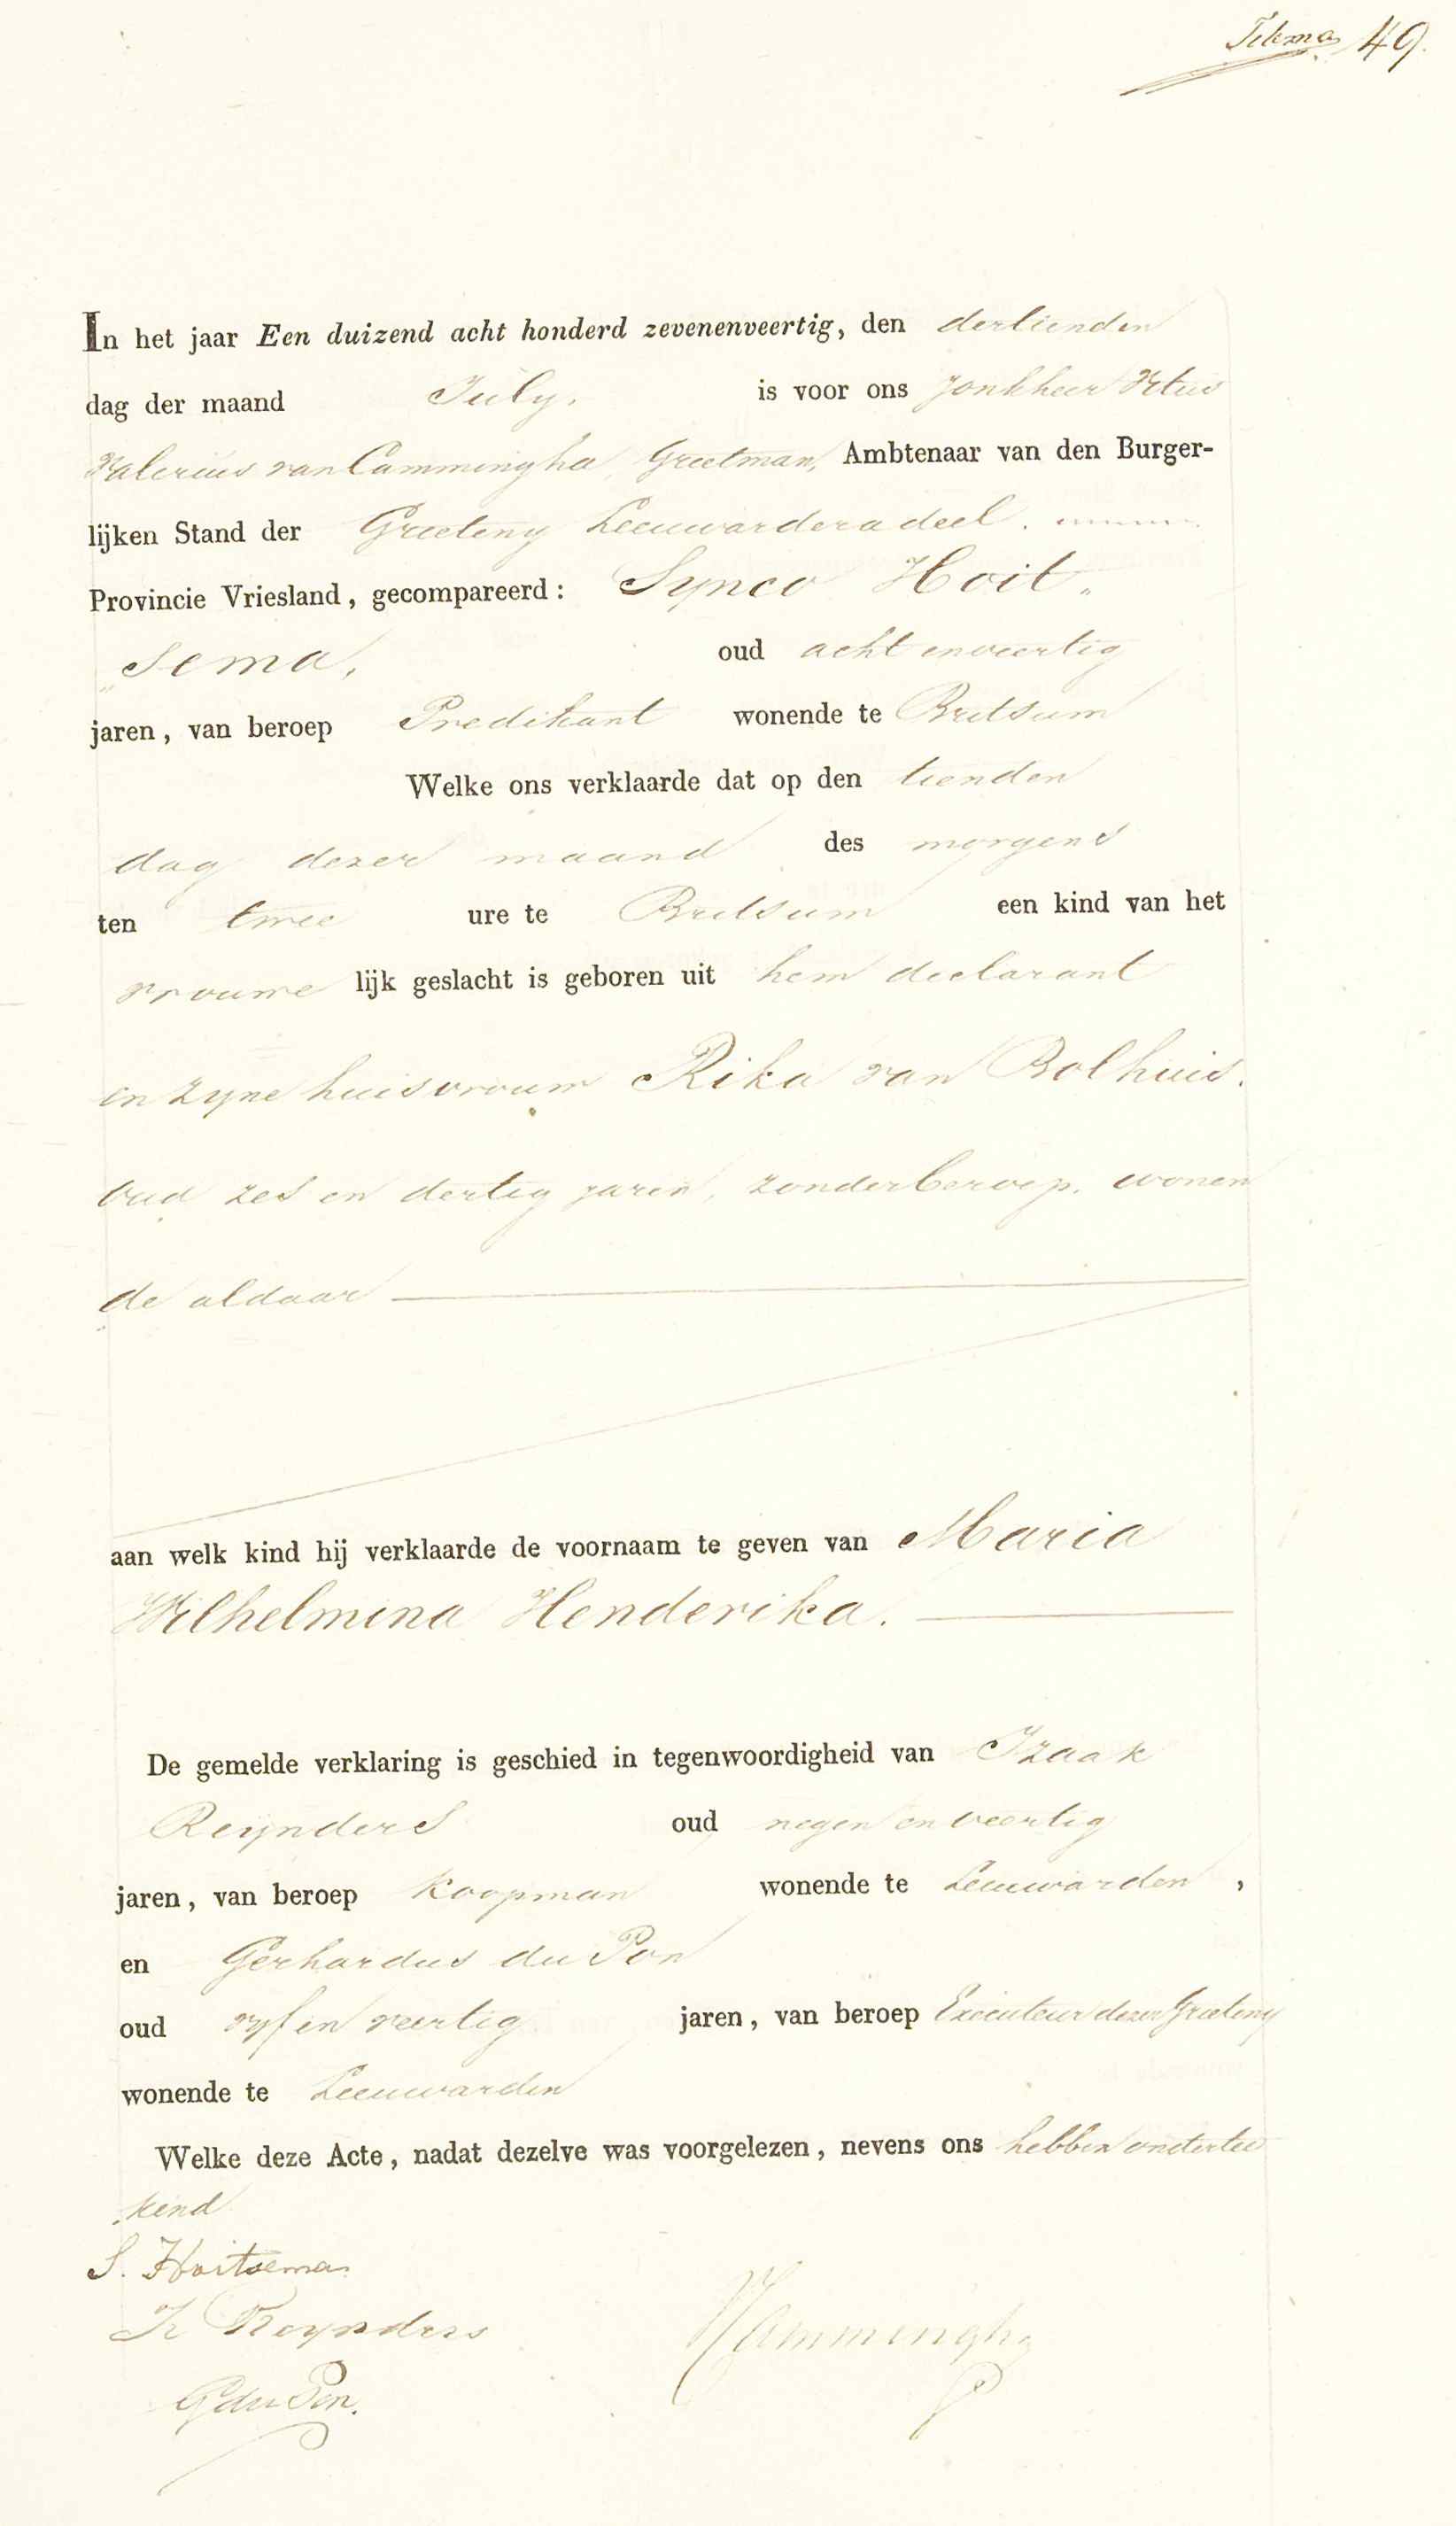 Tekma 49.
In het jaar Een duizend acht honderd zevenenveertig, den dertienden
dag der maand July. is voor ons Jonkheer Vitus
Valerius van Cammingha, Grietman, Ambtenaar van den Burger-
lijken Stand der Grieteny Leeuwarderadeel.
Provincie Vriesland, gecompareerd: Synco Hoit„
„sema, oud acht en veertig
jaren, van beroep Predikant wonende te Britsum
Welke ons verklaarde dat op den tienden
dag dezer maand des morgens
ten twee ure te Britsum een kind van het
vrouwe lijk geslacht is geboren uit hem declarant
en zyne huisvrouw Rika van Bolhuis.
oud zes en dertig jaren, zonder beroep. wonen
de aldaar
aan welk kind hij verklaarde de voornaam te geven van Maria
Wilhelmina Henderika.
De gemelde verklaring is geschied in tegenwoordigheid van Izaak
Reijnders oud negen en veertig
jaren, van beroep Koopman wonende te Leeuwarden,
en Gerhardus du Pon
oud vyf en veertig jaren, van beroep Executeur dezer Grieteny
wonende te Leeuwarden
Welke deze Acte, nadat dezelve was voorgelezen, nevens ons hebben ondertee
kend
S. Hoitsema
Iz Reynders
VCammingha
G du Pon.